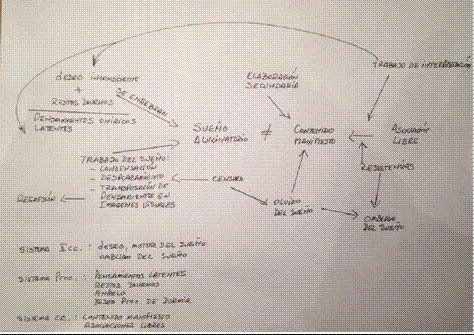 TRABAJO DE INTERPRETACIÓN
DESEO INCONSCIENTE
+
RESTOS DIURNOS
PENSAMIENTOS ONÍRICOS
LATENTES
SE ENHEBRAN
ELABORACIÓN
SECUNDARIA
SUEÑO
ALUCINATORIO
≠
CONTENIDO
MANIFIESTO
ASOCIACIÓN
LIBRE
TRABAJO DEL SUEÑO:
- CONDENSACIÓN
- DESPLAZAMIENTO
- TRANSPOSICIÓN DE
PENSAMIENTO EN
IMÁGENES VISUALES
CENSURA
RESISTENCIAS
REGRESIÓN
OLVIDO
DEL SUEÑO
OMBLIGO
DEL SUEÑO
SISTEMA Icc. : DESEO, MOTOR DEL SUEÑO
OMBLIGO DEL SUEÑO
SISTEMA Prcc. : PENSAMIENTOS LATENTES
RESTOS DIURNOS
DESEO Prcc. DE DORMIR
SISTEMA CC. : CONTENIDO MANIFIESTO
ASOCIACIONES LIBRES